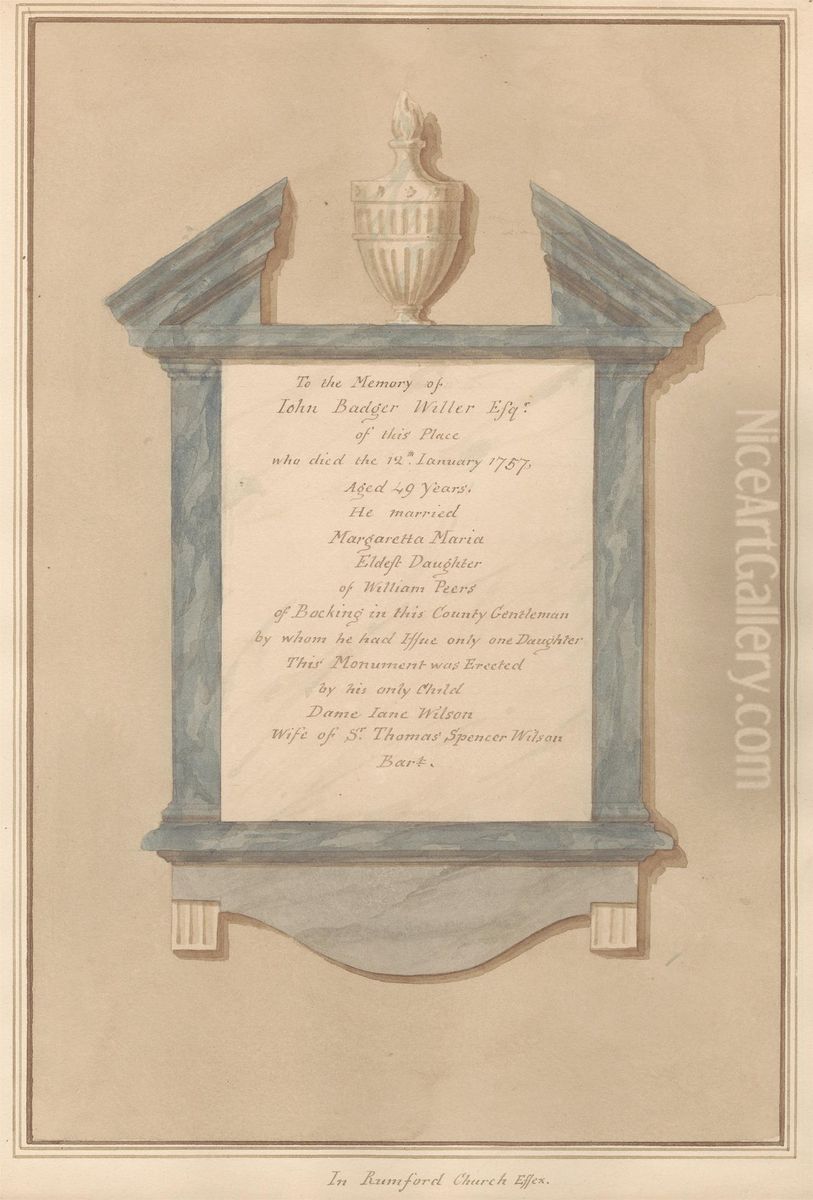 To the Memory of
Iohn Badger Willer Esqr.
of this Place
who died the 12th. Ianuary 1757,
Aged 49 Years.
He married
Margaretta Maria
Eldeſt Daughter
of William Peers
of Bocking in this County Gentleman
by whom he had Iſſue only one Daughter
This Monument was Erected
by his only Child
Dame Iane Wilson
Wife of Sr. Thomas Spencer Wilson
Bart.
In Rumford Church Eſſex.
NiceArtGallery.com